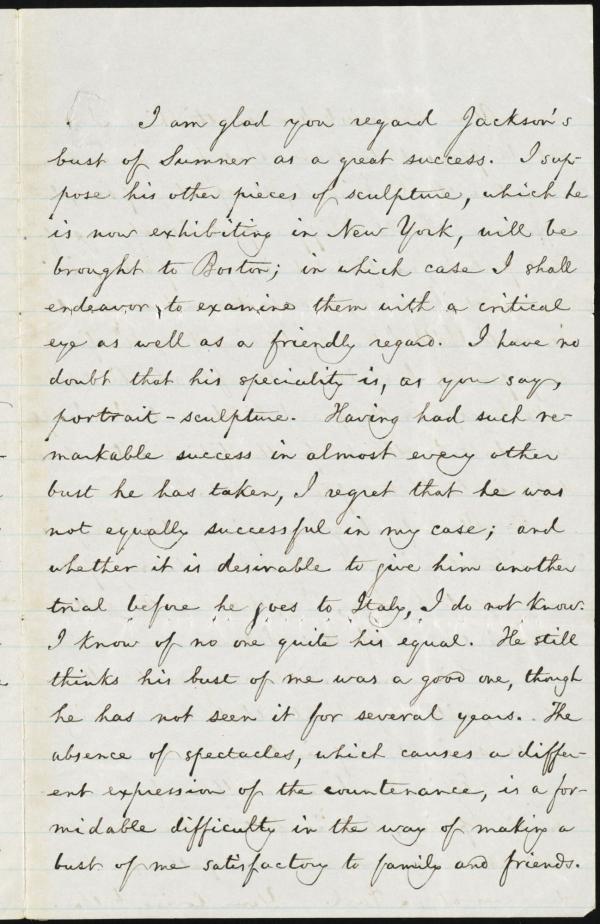 I am glad you regard Jackson's
bust of Sumner as a great success. I sup-
pose his other pieces of sculpture, which he
is now exhibiting in New York, will be
brought to Boston; in which case I shall
endeavor, to examine them with a critical
eye as well as a friendly regard. I have no
doubt that his speciality is, as you say,
portrait-sculpture. Having had such re-
markable success in almost every other
bust he has taken, I regret that he was
not equally successful in my case; and
whether it is desirable to give him another
trial before he goes to Italy, I do not know.
I know of no one quite his equal. He still
thinks his bust of me was a good one, though
he has not seen it for several years. The
absence of spectacles, which causes a differ-
ent expression of the countenance, is a for-
midable difficulty in the way of making a
bust of me satisfactory to family and friends.